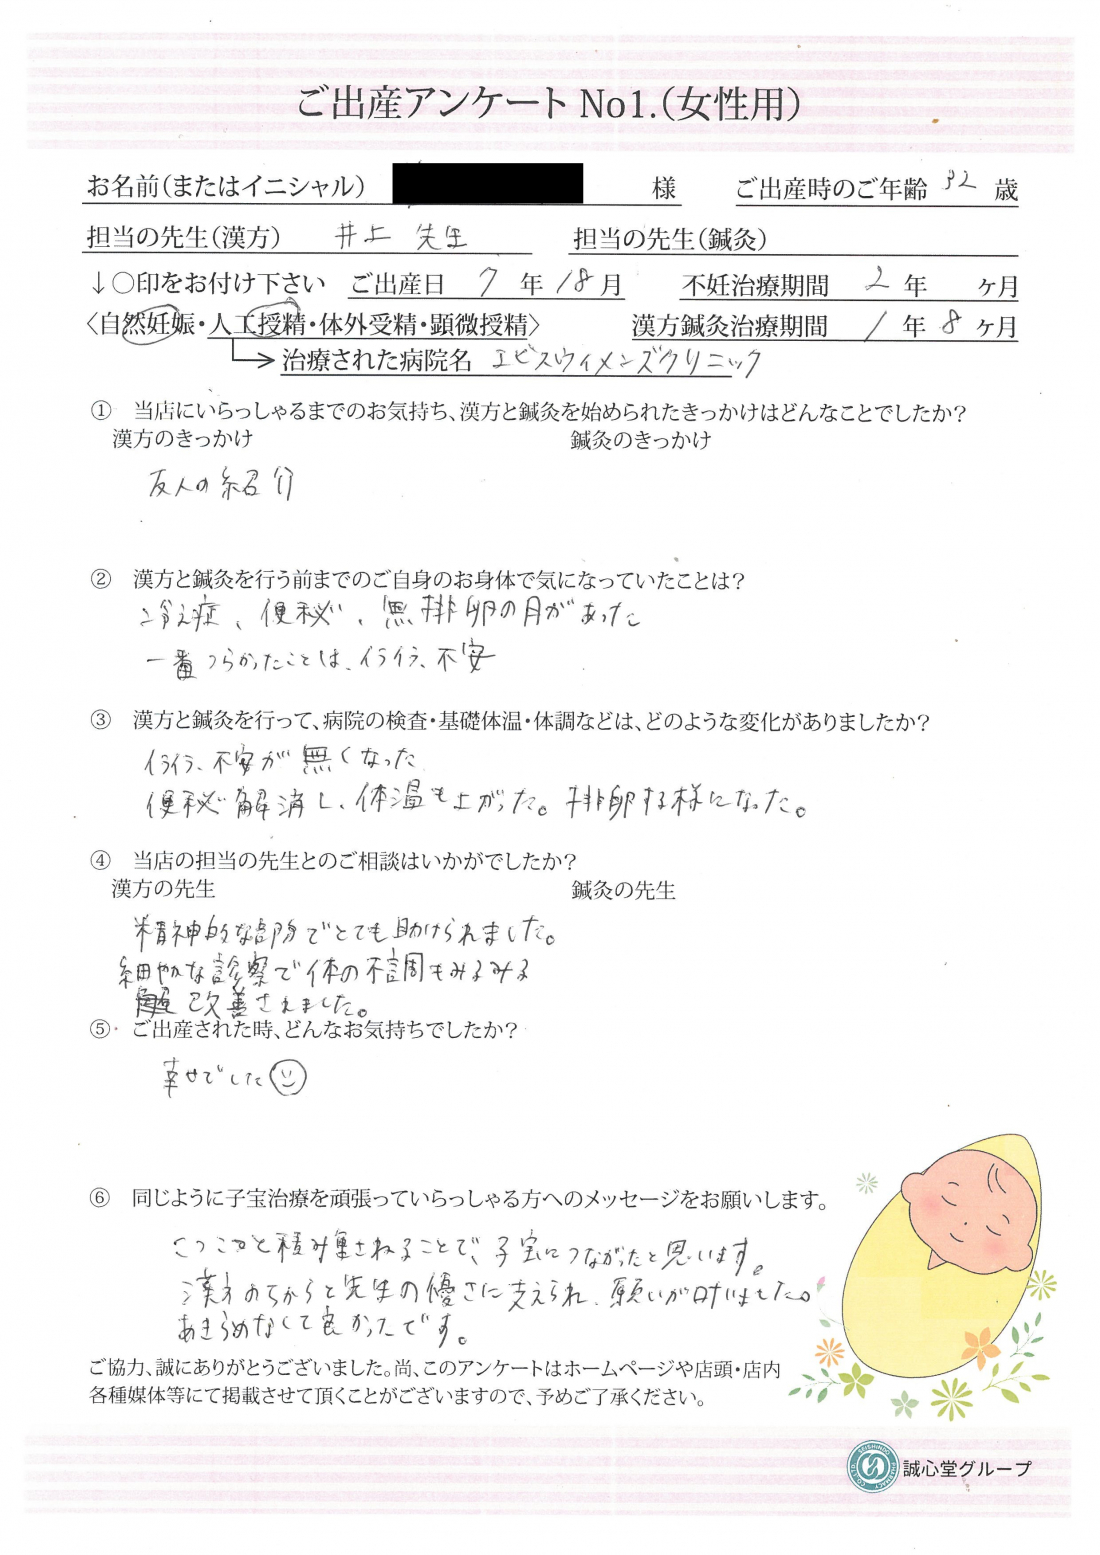 ご出産アンケート No1.(女性用)
お名前(またはイニシャル) 様 ご出産時のご年齢 32 歳
担当の先生(漢方) 井上 先生 担当の先生(鍼灸)
↓〇印をお付け下さい ご出産日 7 年 18 月 不妊治療期間 2 年 ヶ月
〈自然妊娠・人工授精・体外受精・顕微授精〉 漢方鍼灸治療期間 1 年 8 ヶ月
治療された病院名 エビスウィメンズクリニック
① 当店にいらっしゃるまでのお気持ち、漢方と鍼灸を始められたきっかけはどんなことでしたか?
漢方のきっかけ 鍼灸のきっかけ
友人の紹介
② 漢方と鍼灸を行う前までのご自身のお身体で気になっていたことは?
冷え症、便秘、無排卵の月があった
一番つらかったことは、イライラ、不安
③ 漢方と鍼灸を行って、病院の検査・基礎体温・体調などは、どのような変化がありましたか?
イライラ、不安が無くなった
便秘解消し、体温も上がった。排卵する様になった。
④ 当店の担当の先生とのご相談はいかがでしたか?
漢方の先生 鍼灸の先生
精神的な部分でとても助けられました。
細やかな診察で体の不調もみるみる
改善されました。
⑤ ご出産された時、どんなお気持ちでしたか?
幸せでした
⑥ 同じように子宝治療を頑張っていらっしゃる方へのメッセージをお願いします。
こつこつと積み重ねることで、子宝につながったと思います。
漢方のちからと先生の優さに支えられ、願いが叶いました。
あきらめなくて良かったです。
ご協力、誠にありがとうございました。尚、このアンケートはホームページや店頭・店内
各種媒体等にて掲載させて頂くことがございますので、予めご了承ください。
誠心堂グループ